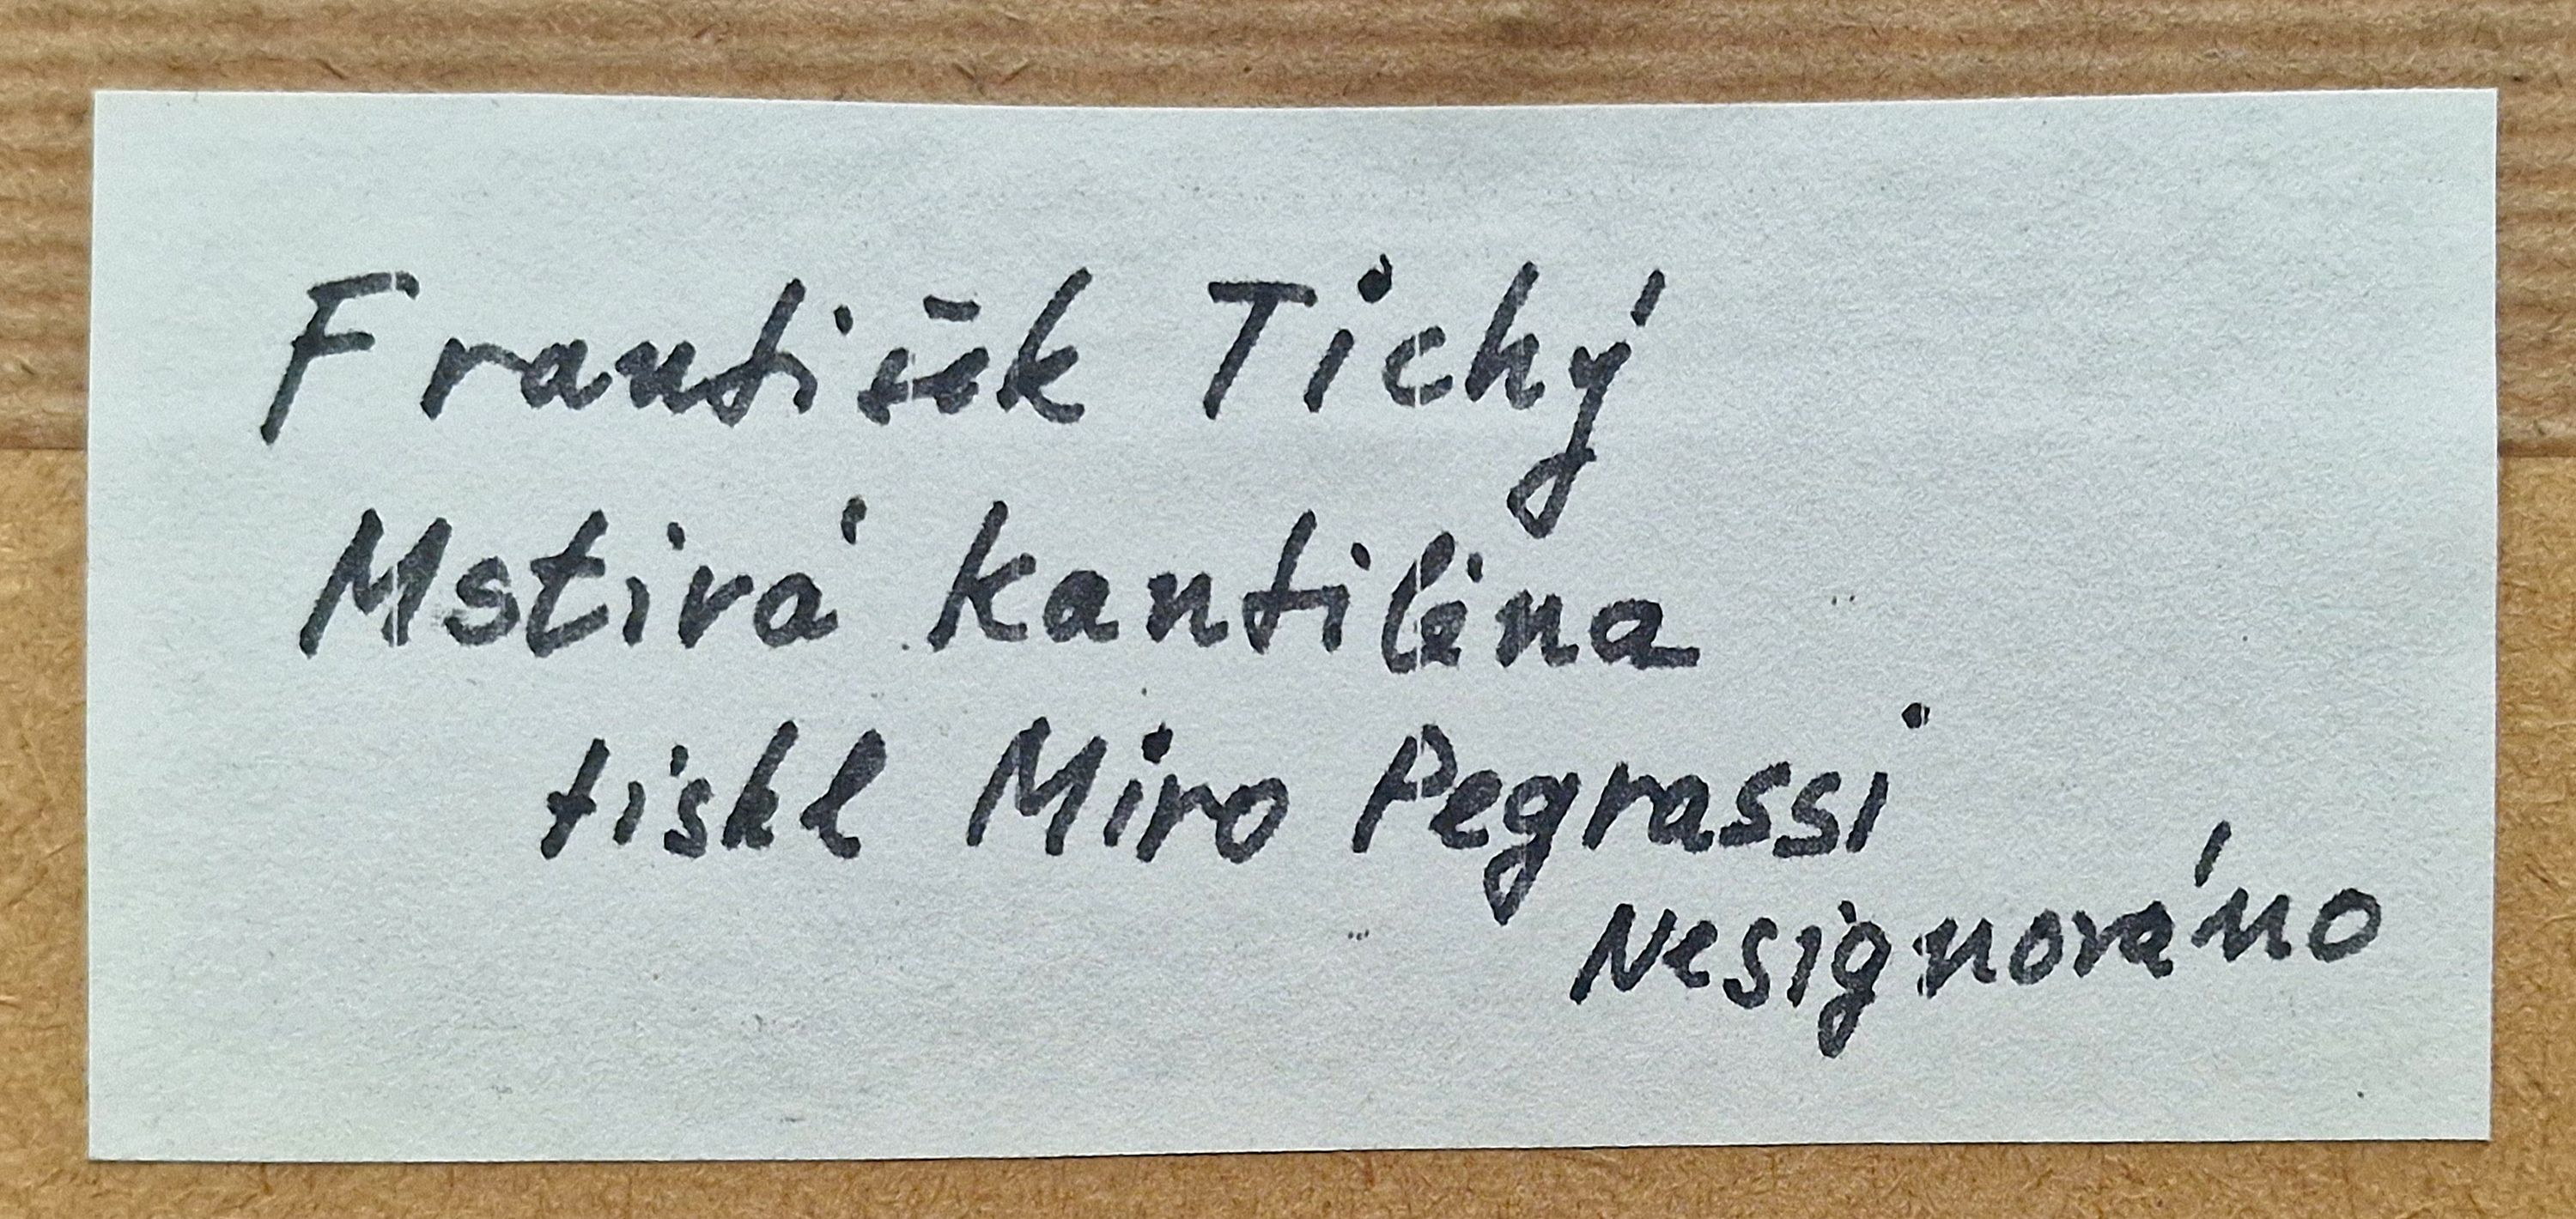 František Tichý
Mstivá kantiléna
tiskl Miro Pegrassi
Nesignováno